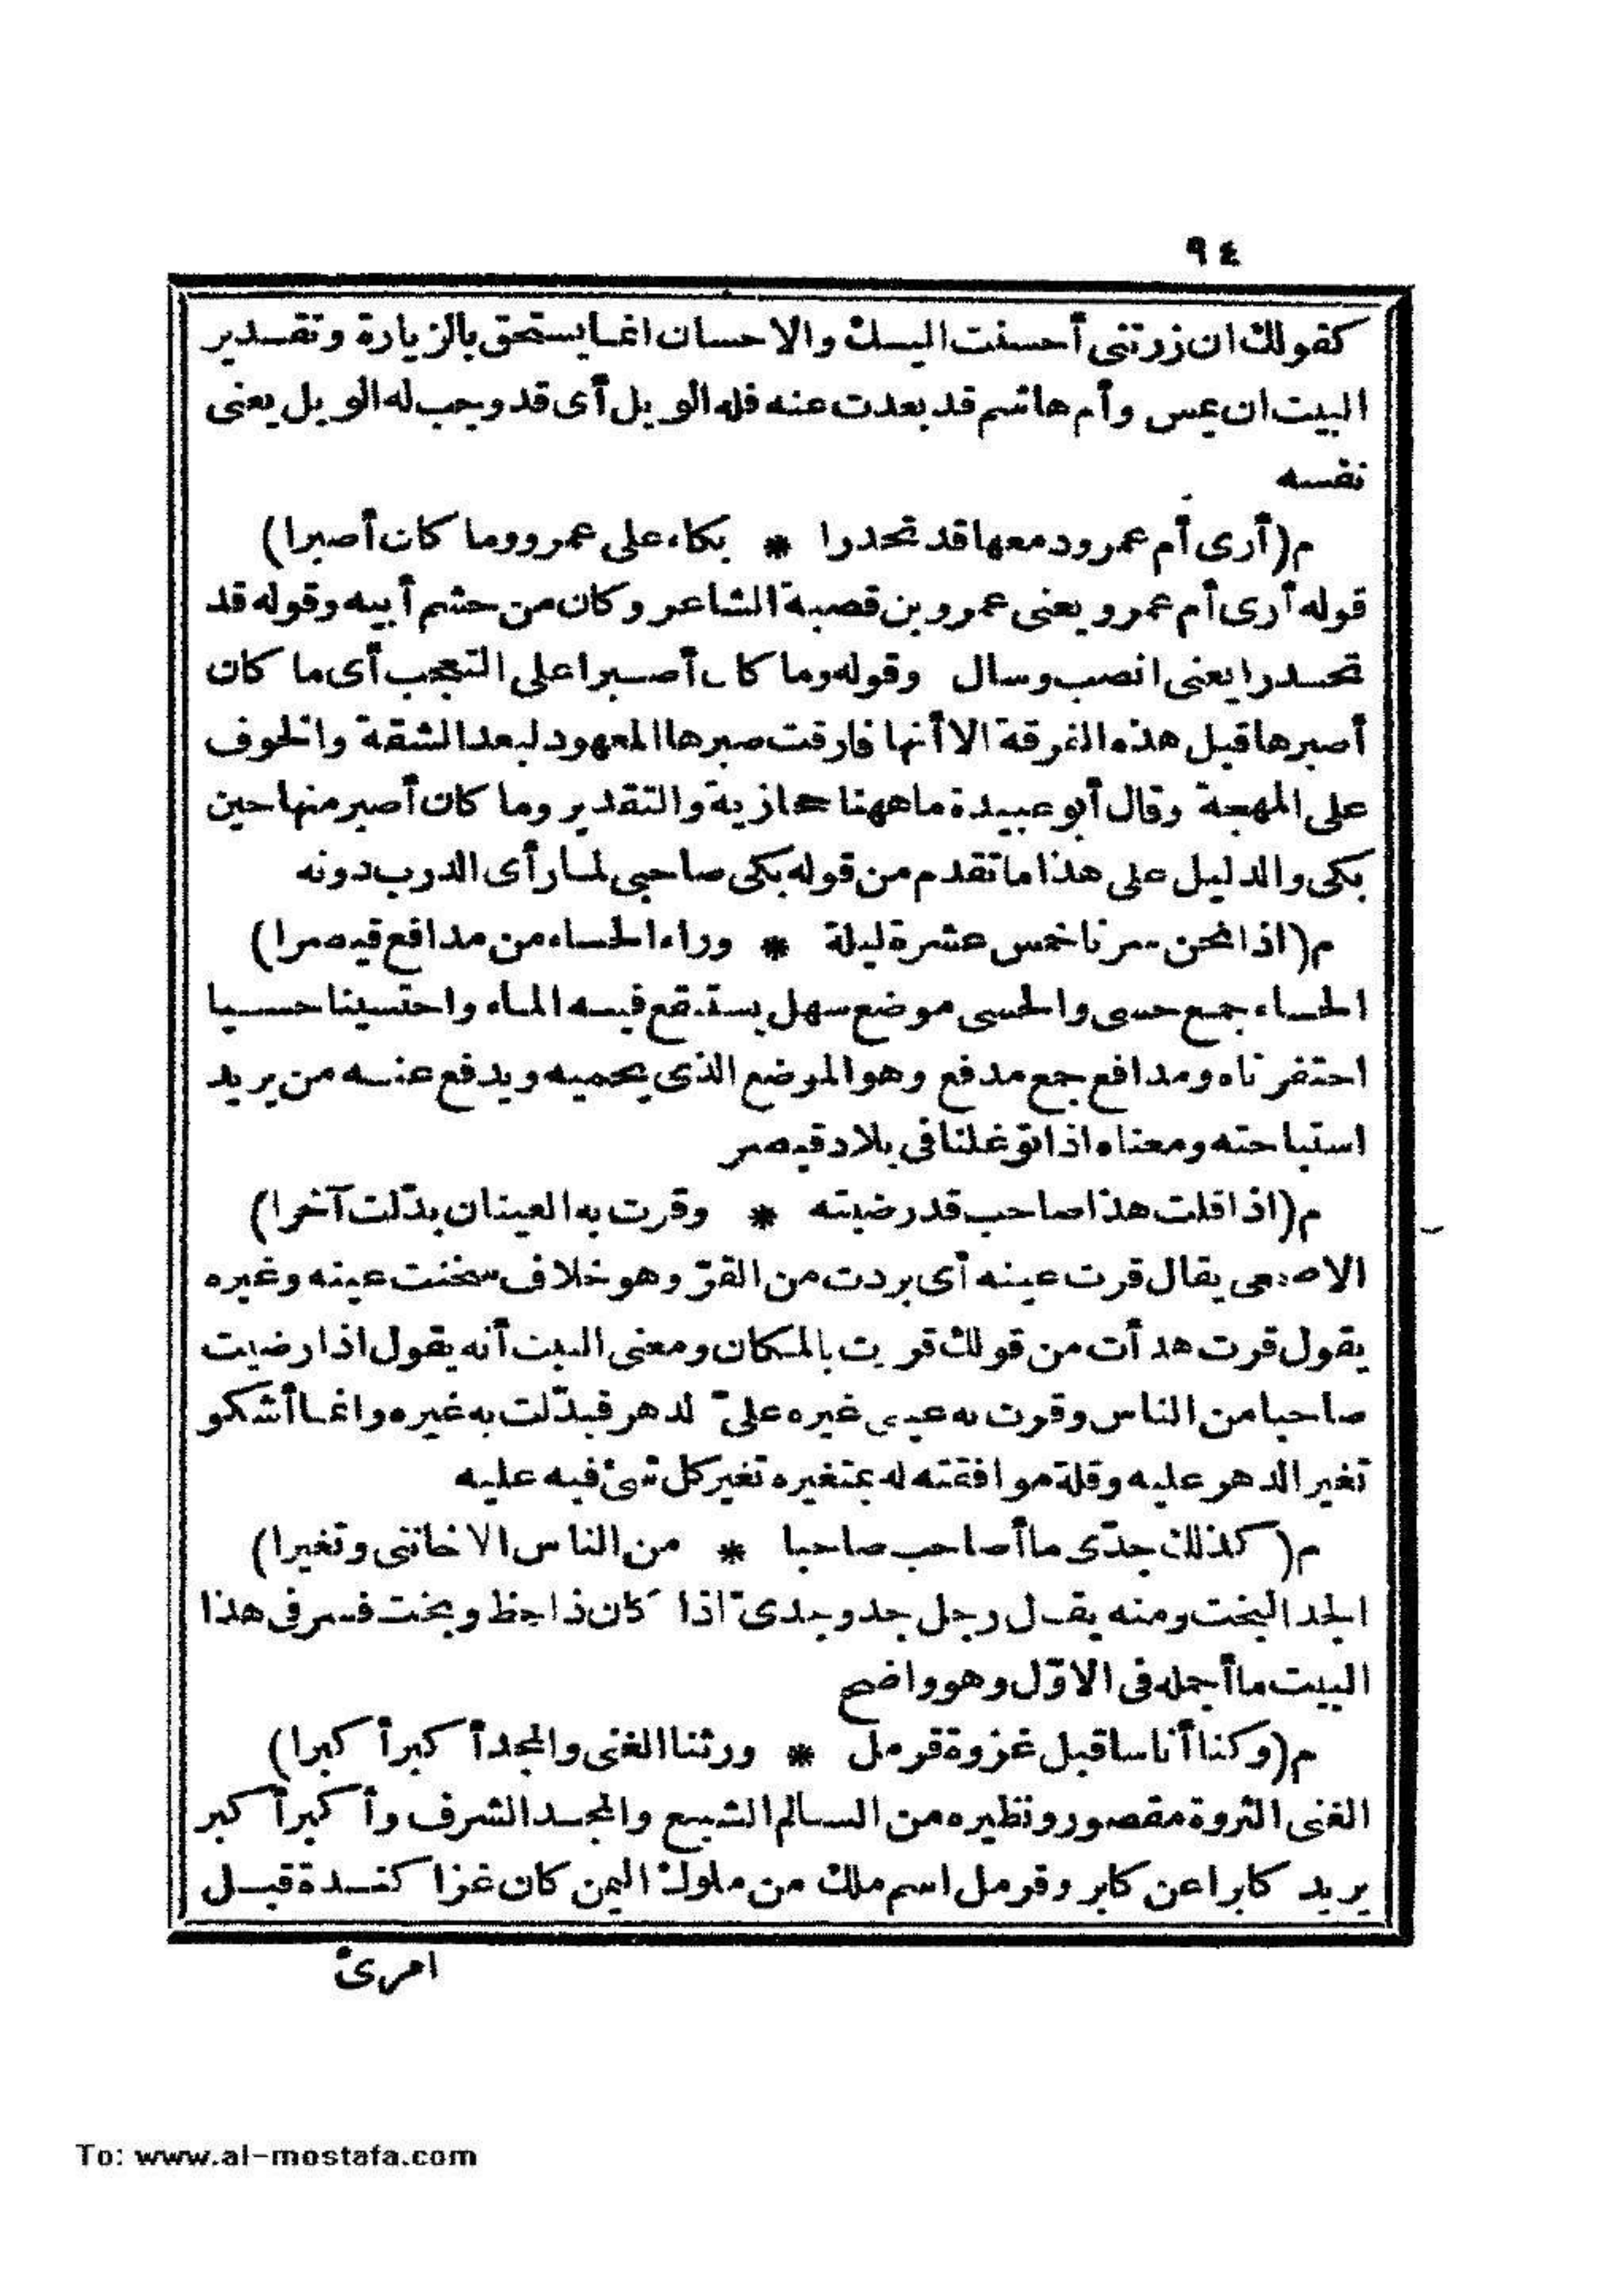 ٩٤
كقولك ان زرتنى أحسنت اليك والاحسان انما يستحق بالزيارة وتقدير
البيت ان يمس وأم هاشم قد بعدت عنه فله الويل أى قد وجب له الويل يعنى
نفسه
م(أرى أم عمرو دمعها قد تحدرا * بكاء على عمرو وما كان أصبرا)
قوله أرى أم عمرو يعنى عمرو بن قصبة الشاعر وكان من حشم أبيه وقوله قد
تحدرا يعنى انصب وسال وقوله وما كان أصبرا على التعجب أى ما كان
أصبرها قبل هذه الفرقة الا أنها فارقت صبرها المعهود لبعد الشقة والخوف
على المهجة وقال أبو عبيدة ما ههنا حجازية والتقدير وما كان أصبر منها حين
بكى والدليل على هذا ما تقدم من قوله بكى صاحبى لما رأى الدرب دونه
م(اذا نحن سرنا خمس عشرة ليلة * وراء الحساء من مدافع قيصرا)
الحساء جمع حسى والحسى موضع سهل يستنقع فيه الماء واحتسينا حسيا
احتفرناه ومدافع جمع مدفع وهو الموضع الذى يحميه ويدفع عنه من يريد
استباحته ومعناه اذا توغلنا فى بلاد قيصر
م(اذا قلت هذا صاحب قد رضيته * وقرت به العينان بدّلت آخرا)
الاصمعى يقال قرت عينه أى بردت من القرّ وهو خلاف سخنت عينه وغيره
يقول قرت هدأت من قولك قررت بالمكان ومعنى البيت أنه يقول اذا رضيت
صاحبا من الناس وقرت به عينى غيره علىّ الدهر فبدّلت به غيره وانما أشكو
تغير الدهر عليه وقلة موافقته له بتغيره تغير كل شئ فيه عليه
م(كذلك جدّى ما أصاحب صاحبا * من الناس الا خاننى وتغيرا)
الجد البخت ومنه يقال رجل جد وجدىّ اذا كان ذا حظ وبخت فسر فى هذا
البيت ما أجمله فى الاوّل وهو واضح
م(وكنا أناسا قبل غزوة قرمل * ورثنا الغنى والمجد أكبر أكبرا)
الغنى الثروة مقصور ونظيره من السالم الشبع والمجد الشرف وأكبر أكبر
يريد كابرا عن كابر وقرمل اسم ملك من ملوك اليمن كان غزا كندة قبل
امرئ
To: www.al-mostafa.com